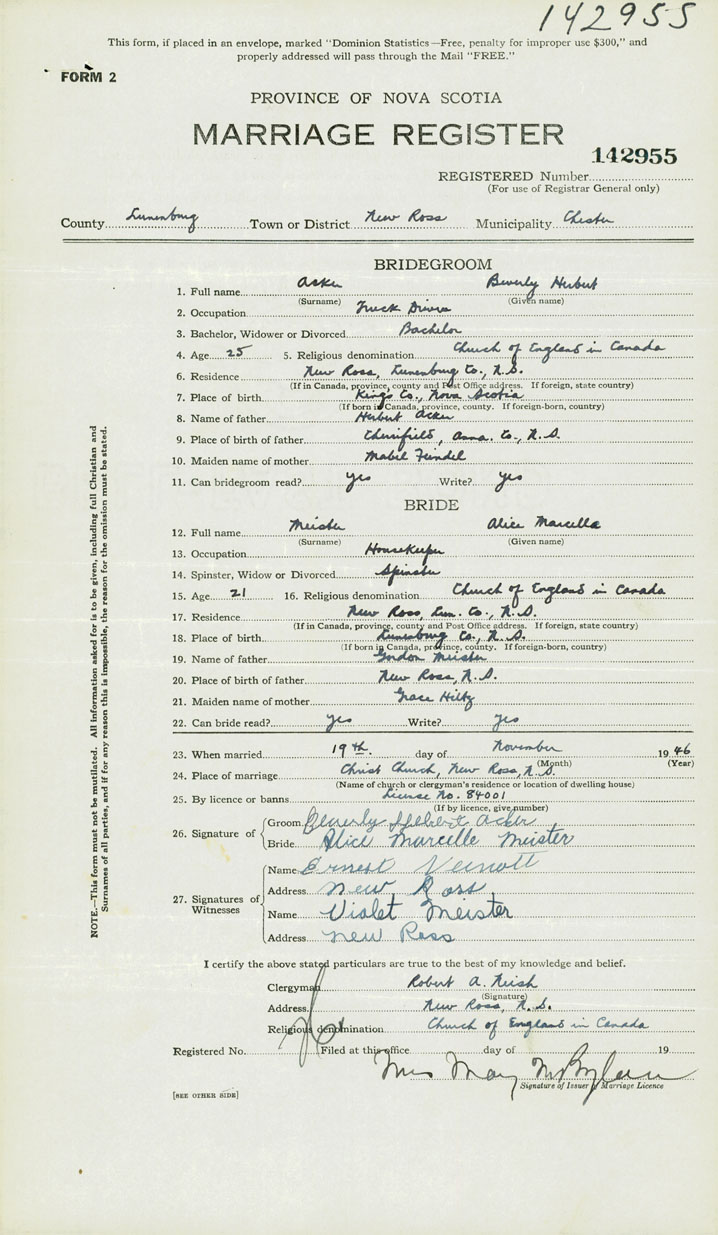 142955
This form, if placed in an envelope, marked "Dominion Statistics—Free, penalty for improper use $300," and
properly addressed will pass through the Mail "FREE."
FORM 2
PROVINCE OF NOVA SCOTIA
MARRIAGE REGISTER
142955
REGISTERED Number
(For use of Registrar General only)
County Lunenburg Town or District New Ross Municipality Chester
BRIDEGROOM
1. Full name Acker Beverly Herbert
(Surname) (Given name)
2. Occupation Truck Driver
3. Bachelor, Widower or Divorced Bachelor
4. Age 25 5. Religious denomination Church of England in Canada
6. Residence New Ross, Lunenburg Co., N.S.
(If in Canada, province, county and Post Office address. If foreign, state country)
7. Place of birth Kings Co., Nova Scotia
(If born in Canada, province, county. If foreign-born, country)
8. Name of father Herbert Acker
9. Place of birth of father Anna. Co., N.S.
10. Maiden name of mother Mabel
11. Can bridegroom read? Yes Write? Yes
BRIDE
12. Full name Meister Alice Marcella
(Surname) (Given name)
13. Occupation Housekeeper
14. Spinster, Widow or Divorced Spinster
15. Age 21 16. Religious denomination Church of England in Canada
17. Residence New Ross, Lun. Co., N.S.
(If in Canada, province, county and Post Office address. If foreign, state country)
18. Place of birth Lunenburg Co., N.S.
(If born in Canada, province, county. If foreign-born, country)
19. Name of father Gordon Meister
20. Place of birth of father New Ross, N.S.
21. Maiden name of mother Grace Hiltz
22. Can bride read? Yes Write? Yes
23. When married 19th. day of November 1946
(Month) (Year)
24. Place of marriage Christ Church, New Ross, N.S.
(Name of church or clergyman's residence or location of dwelling house)
25. By licence or banns License No. 84001
(If by licence, give number)
26. Signature of Groom Beverly Herbert Acker
Bride Alice Marcelle Meister
27. Signatures of Witnesses
Name Ernest Veinott
Address New Ross
Name Violet Meister
Address New Ross
I certify the above stated particulars are true to the best of my knowledge and belief.
Clergyman Robert A. Neish
(Signature)
Address New Ross, N.S.
Religious denomination Church of England in Canada
Registered No. Filed at this office day of 19
Mrs May
Signature of Issuer of Marriage Licence
[SEE OTHER SIDE]
NOTE.—This form must not be mutilated. All information asked for is to be given, including full Christian and
Surnames of all parties, and if for any reason this is impossible, the reason for the omission must be stated.